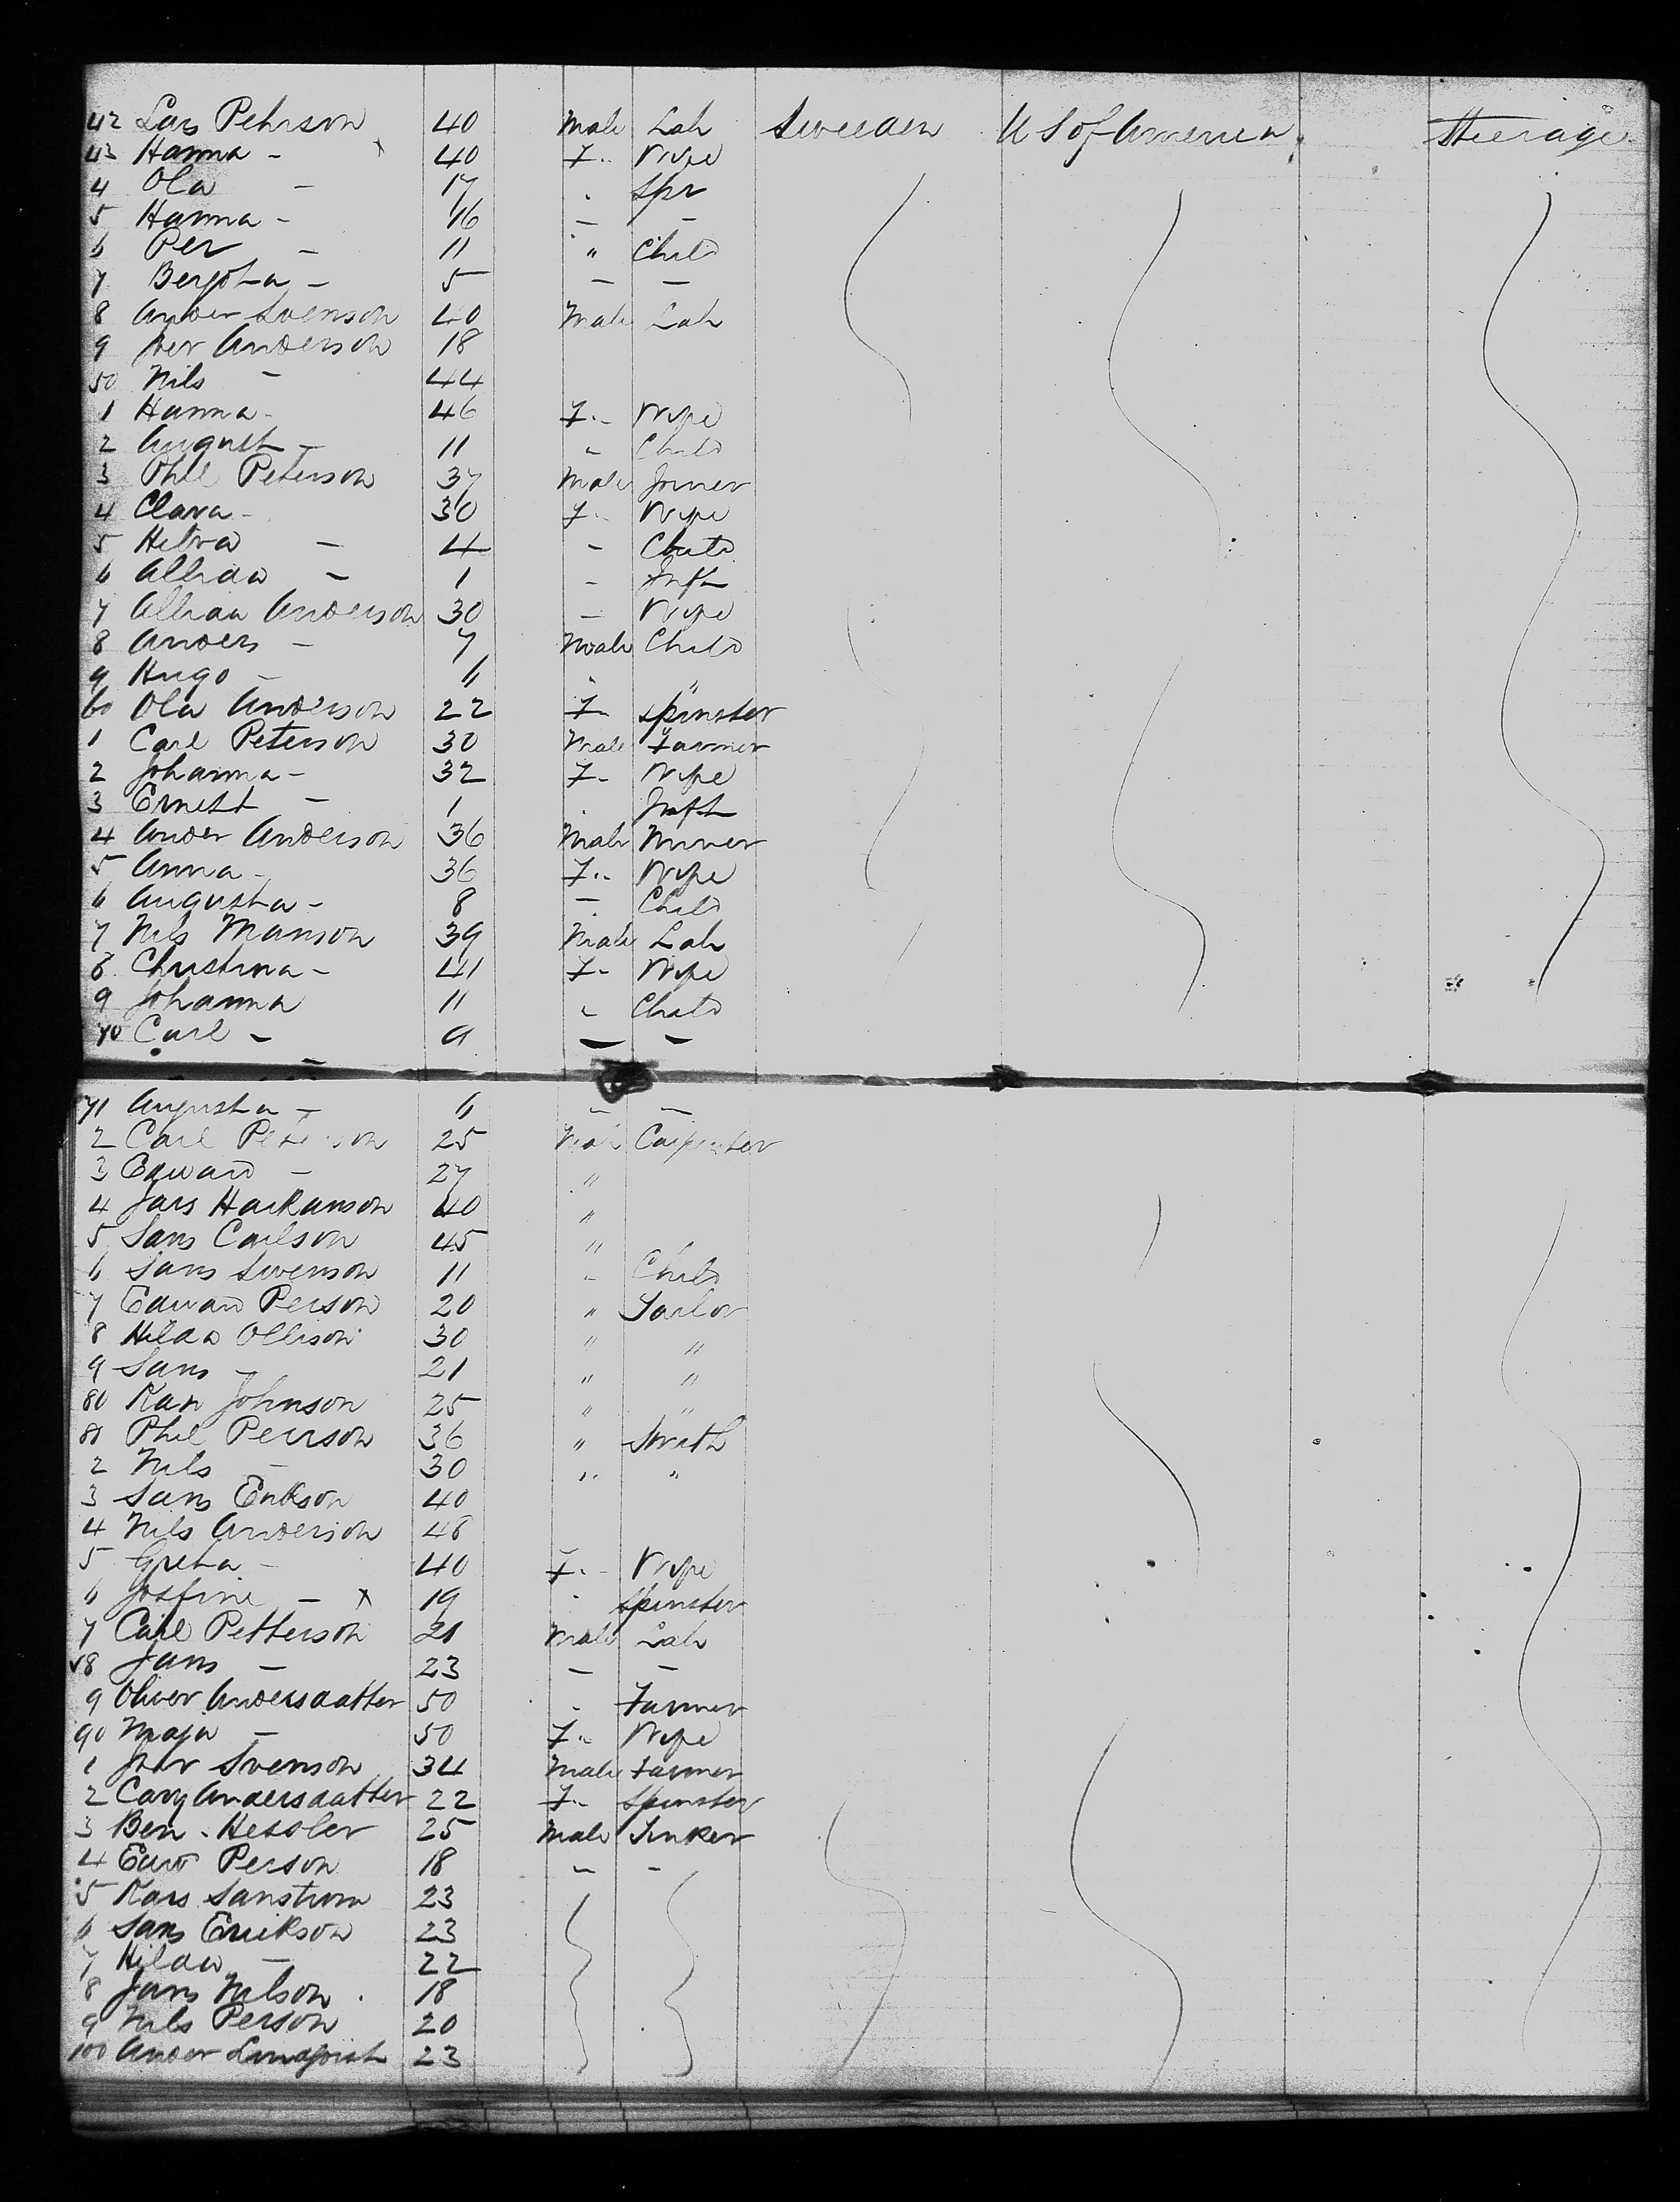 42 Lars Pehrson 40 Male Lab Sweeden U S of America. Steerage
43 Hanna - x 40 F.. Wife
4 Ola - 17 . Spr
5 Hanna - 16 - -
6 Per - 11 " Child
7 - 5 - -
8 Ander Svenson 40 Male Lab
9 Per Anderson 18
50 Nils - 44
1 Hanna - 46 F.. Wife
2 August - 11 - Child
3 Phil Peterson 37 Male Joiner
4 Clara - 30 F.. Wife
5 - 4 - Child
6 - 1 - Inft
7 Anderson 30 - Wife
8 Anders - 7 Male Child
9 Hugo - 6 . "
60 Ola Anderson 22 F- Spinster
1 Carl Peterson 30 Male Farmer
2 Johanna - 32 F- Wife
3 Ernest - 1 . Inft
4 Ander Anderson 36 Male Miner
5 Anna - 36 F.. Wife
6 Augusta - 8 - Child
7 Nils Manson 39 Male Lab
8 Christina - 41 F- Wife
9 Johanna 11 - Child
70 Carl - 9 - -
71 Augusta - 6 - -
2 Carl Peterson 25 Male Carpenter
3 Edward - 27 "
4 Jars Hackanson 40 "
5 Sans Carlson 45 "
6 Sans Swenson 11 - Child
7 Edward Person 20 " Tailor
8 Hilda Ollison 30 " "
9 Sans - 21 " "
80 Johnson 25 " "
81 Phil Peirson 36 " Smith
2 Nils - 30 " "
3 Sans Erikson 40
4 Nils Anderson 48
5 Greta - 40 F.. Wife
6 Josfine - x 19 . Spinster
7 Carl Petterson 21 Male Lab
8 Jans - 23 - -
9 Oliver Andersdatter 50 - Farmer
90 Maja - 50 F.. Wife
1 Svenson 34 Male Farmer
2 Cary Andersdatter 22 F- Spinster
3 Ben. Hessler 25 Male Tinker
4 Edwd Person 18 - -
5 Kars Sanstrom 23
6 Sans Erickson 23
7 Hilda - 22
8 Jans Nilson . 18
9 Nils Person 20
100 Ander Lindqvist 23